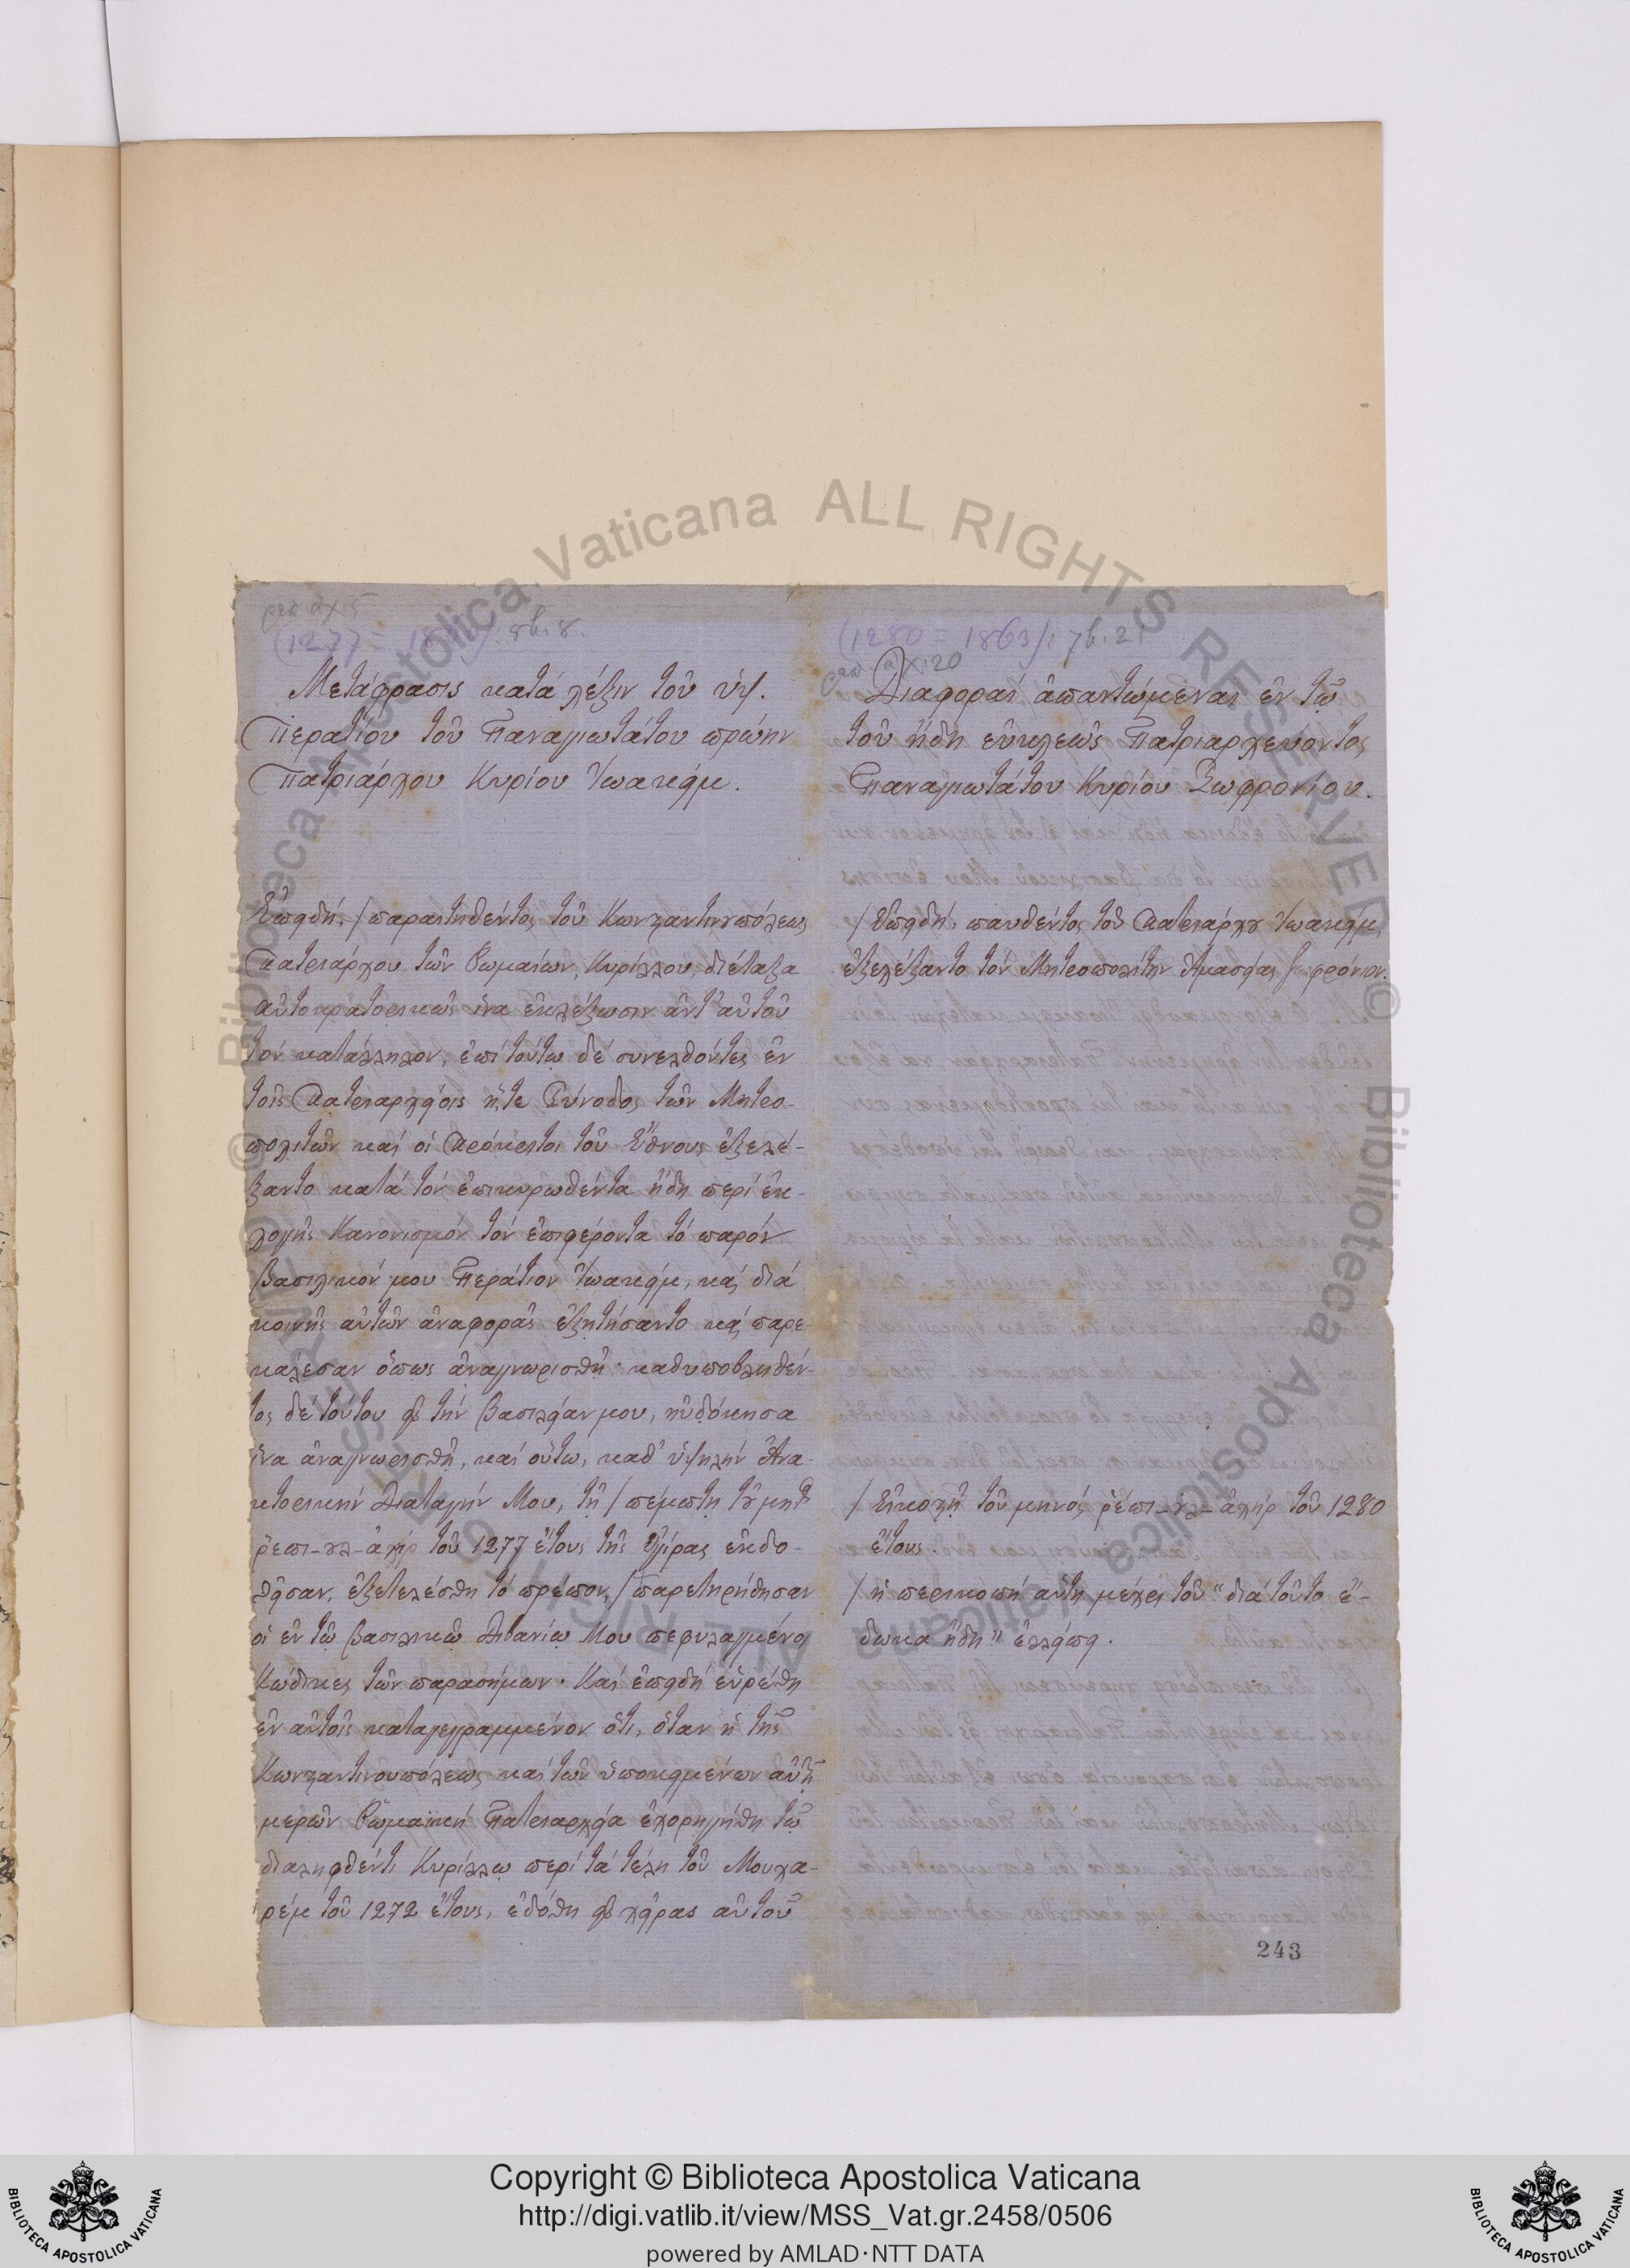 (1277 = 18
: 8b. 8.
Μετάφρασις κατά λέξιν τοῦ ὑψ.
Πΐερατίου τοῦ Παναγιωτάτου πρώην
Πατριάρχου Κυρίου Ἰωακείμ.
Ἐπειδή, / παραιτηθέντος τοῦ Κωνσταντινουπόλεως
Πατριάρχου τῶν Ῥωμαίων, Κυρίλλου, διέταξα
αὐτοκρατορικῶς ἵνα ἐκλέξωσιν ἀντ' αὐτοῦ
τόν κατάλληλον, ἐπί τούτῳ δέ συνελθόντες ἐν
τοῖς Πατριαρχείοις ἥ, τε Σύνοδος τῶν Μητρο-
πολιτῶν καί οἱ Πρόκριτοι τοῦ Ἔθνους ἐξελέ-
ξαντο κατά τόν ἐπικυρωθέντα ἤδη περί ἐκ-
λογῆς Κανονισμόν τόν ἐπιφέροντα τό παρόν
βασιλικόν μου Περάτιον Ἰωακείμ, καί διά
κοινῆς αὐτῶν ἀναφορᾶς ἐζητήσαντο καί παρε-
κάλεσαν ὅπως ἀναγνωρισθῇ· καθυποβληθέν-
τος δέ τούτου εἰς τήν βασιλείαν μου, ηὐδόκησα
ἵνα ἀναγνωρισθῇ, καί οὕτω, καθ' ὑψηλήν Ἀνα-
κτορικήν Διαταγήν Μου, τῇ / πέμπτῃ τοῦ μηνός
ῥεπι-υλ-ἀχήρ τοῦ 1277 ἔτους τῆς Ἐγίρας ἐκδο-
θεῖσαν, ἐξετελέσθη τό πρέπον, / παρετηρήθησαν
οἱ ἐν τῷ βασιλικῷ Διβανίῳ Μου πεφυλαγμένοι
Κώδικες τῶν παρασήμων. Καί ἐπειδή εὑρέθη
ἐν αὐτοῖς καταγεγραμμένον ὅτι, ὅταν ἡ τῆς
Κωνσταντινουπόλεως καί τῶν ὑποκειμένων αὐτῇ
μερῶν Ῥωμαϊκή Πατριαρχεία ἐχορηγήθη τῷ
διαληφθέντι Κυρίλλῳ περί τά τέλη τοῦ Μουχα-
ρέμ τοῦ 1272 ἔτους, ἐδόθη εἰς χεῖρας αὐτοῦ
(1280 = 1863): 7b. 21
Διαφοραί ἀπαντώμεναι ἐν τῷ
τοῦ ἤδη εὐκλεῶς Πατριαρχεύοντος
Παναγιωτάτου Κυρίου Σωφρονίου.
/ Ἐπειδή, παυθέντος τοῦ Πατριάρχου Ἰωακείμ,
ἐξελέξαντο τόν Μητροπολίτην Ἀμασείας Σωφρόνιον.
/ Εἰκοστῇ τοῦ μηνός ῥέπι-υλ-ἀχήρ τοῦ 1280
ἔτους.
/ ἡ περικοπή αὕτη μέχρι τοῦ "διά τοῦτο ἔ-
δωκα ἤδη" ἐλλείπει.
243
Copyright © Biblioteca Apostolica Vaticana
http://digi.vatlib.it/view/MSS_Vat.gr.2458/0506
powered by AMLAD·NTT DATA
BIBLIOTECA APOSTOLICA VATICANA
BIBLIOTECA APOSTOLICA VATICANA
© Biblioteca Apostolica Vaticana ALL RIGHTS RESERVED
© Biblioteca Apostolica Vaticana ALL RIGHTS RESERVED